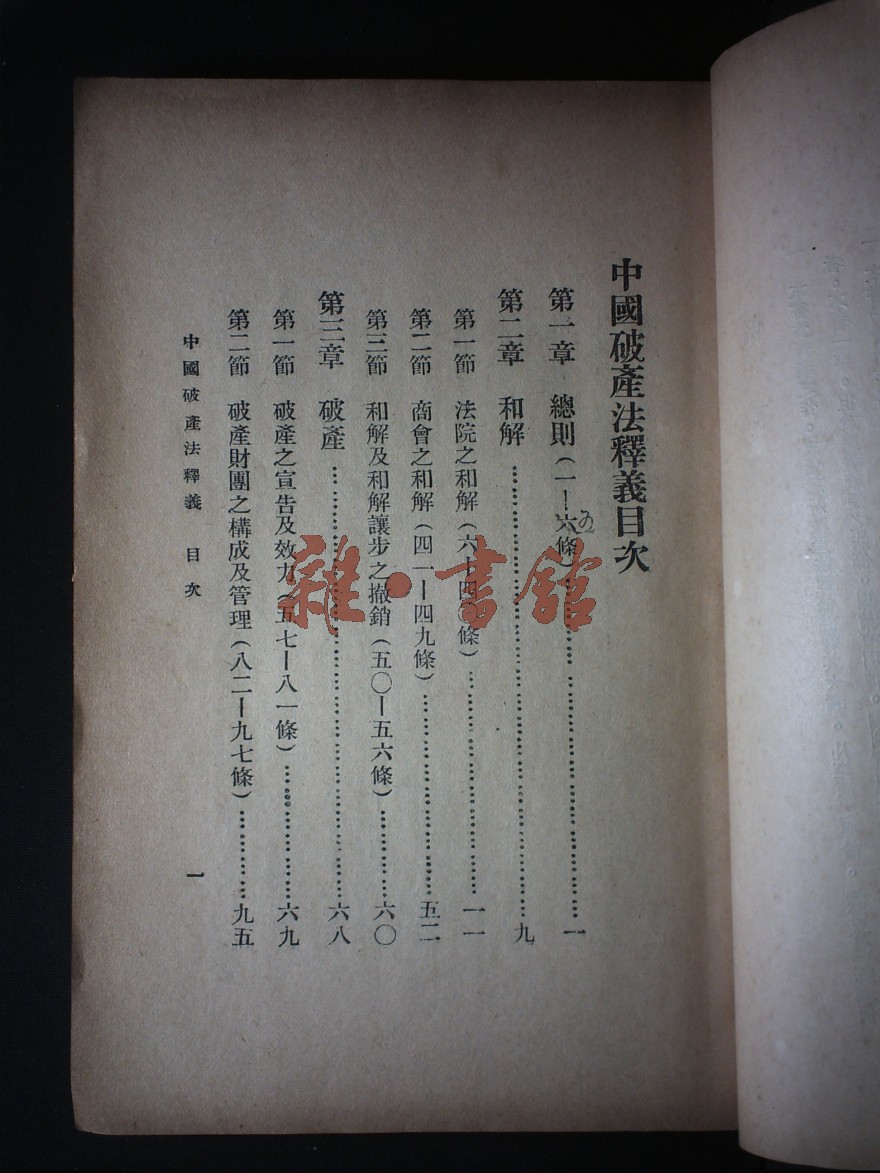 中國破產法釋義目次
第一章 總則(一—六條)……一
五
第二章 和解……九
第一節 法院之和解(六—四〇條)……一一
第二節 商會之和解(四一—四九條)……五二
第三節 和解及和解讓步之撤銷(五〇—五六條)……六〇
第三章 破產……六八
第一節 破產之宣告及效力(五七—八一條)……六九
第二節 破產財團之構成及管理(八二—九七條)……九五
中國破產法釋義 目次 一
雜·書館